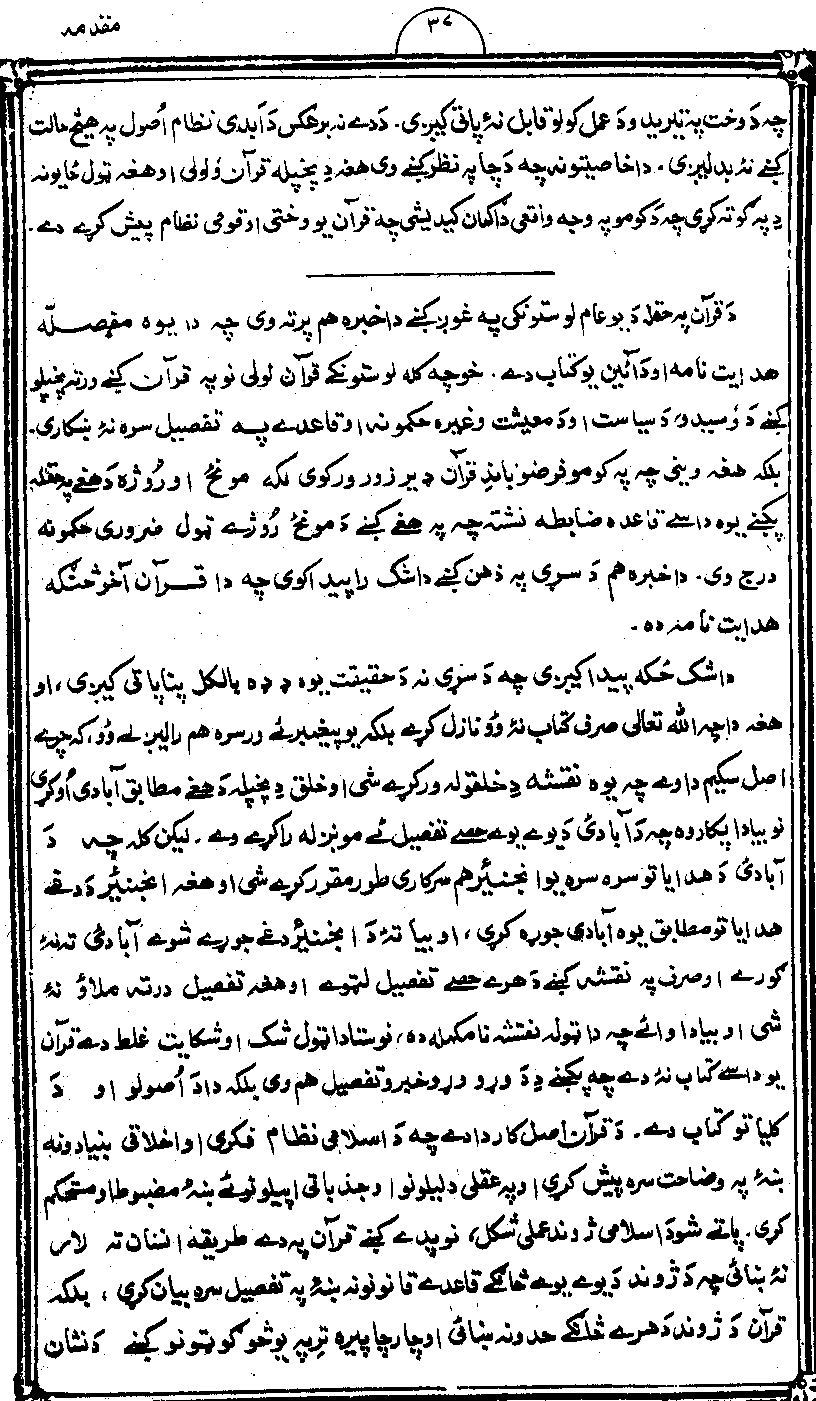 مقدمه
٣٧
چه دَ وخت په تیریدو دَ عمل کولو قابل نهٔ پاتی کیږی. دَدے نه برعکس دَ ابدی نظام اُصول په هیڅ حالت
کښے نهٔ بدلیږی. دا خاصیتونه چه دَ چا په نظر کښے وی هغه دِ پخپله قرآن وُلولی او هغه ټول ځایونه
دِ په ګوته کړی چه دَ کومو په وجه واقعی دا ګمان کیدیشی چه قرآن یو وختی او قومی نظام پیش کړے دے.
دَ قرآن په حقله دَ یو عام لوستونکی په غوږ کښے دا خبره هم پرته وی چه دا یوه مفصله
هدایت نامه او دَ آئین یو کتاب دے. خو چه کله لوستونکے قرآن لولی نو په قرآن کښے ورته پخپلو
کښے دَ وُسیدو، دَ سیاست او دَ معیشت وغیره حکمونه او قاعدے په تفصیل سره نهٔ ښکاری.
بلکه هغه وینی چه په کومو فرضو باندِ قرآن ډیر زور ورکوی لکه مونځ او رُوژه دَ هغے په حقله
پکښے یوه داسے قاعده ضابطه نشته چه په هغے کښے دَ مونځ رُوژے ټول ضروری حکمونه
درج وی. دا خبره هم دَ سړی په ذهن کښے دا شک راپیدا کوی چه دا قرآن آخو څنګه
هدایت نامه ده.
دا شک ځکه پیدا کیږی چه دَ سړی نه دَ حقیقت یوه ډډه بالکل پناپاتی کیږی، او
هغه دا چه الله تعالی صرف کتاب نهٔ وُو نازل کړے بلکه یو پیغمبر ئے ورسره هم رالیږلے وُو، که چرے
اصل سکیم داوے چه یوه نقشه دِ خلقو له ورکړے شی او خلق دِ پخپله دَ هغے مطابق آبادی اُوکړی
نو بیا دا پکار وه چه دَ آبادئ دَ یوے یوے حصے تفصیل ئے مونږ له راکړے وے. لیکن کله چه دَ
آبادئ دَ هدایاتو سره سره یو انجنیئر هم سرکاری طور مقرر کړے شی او هغه انجنیئر دَ دغے
هدایاتو مطابق یوه آبادی جوړه کړی، او بیا تهٔ دَ انجنیئر دغے جوړے شوے آبادئ ته نهٔ
ګورے او صرف په نقشه کښے دَ هرے حصے تفصیل لټوے او هغه تفصیل درته ملاؤ نهٔ
شی او بیا دا وائے چه دا ټوله نقشه نامکمله ده، نو ستا دا ټول شک او شکایت غلط دے قرآن
یو داسے کتاب نهٔ دے چه پکښے دِ دَ وړو وړو خبرو تفصیل هم وی بلکه دا دَ اُصولو او دَ
کلیاتو کتاب دے. دَ قرآن اصل کار دا دے چه دَ اسلامی نظام فکری او اخلاقی بنیادونه
ښهٔ په وضاحت سره پیش کړی او په عقلی دلیلونو او جذباتی اپیلونو ئے ښهٔ مضبوط او مستحکم
کړی. پاتے شو دَ اسلامی ژوند عملی شکل، نو پدے کښے قرآن په دے طریقه انسان ته لار
نهٔ ښائی چه دَ ژوند دَ یوے یوے څانګے قاعدے قانونونه ښهٔ په تفصیل سره بیان کړی، بلکه
قرآن دَ ژوند دَ هرے څانګے حدونه ښائی او چارچاپیره تربه یو څو ګوټونو کښے دَ نشان